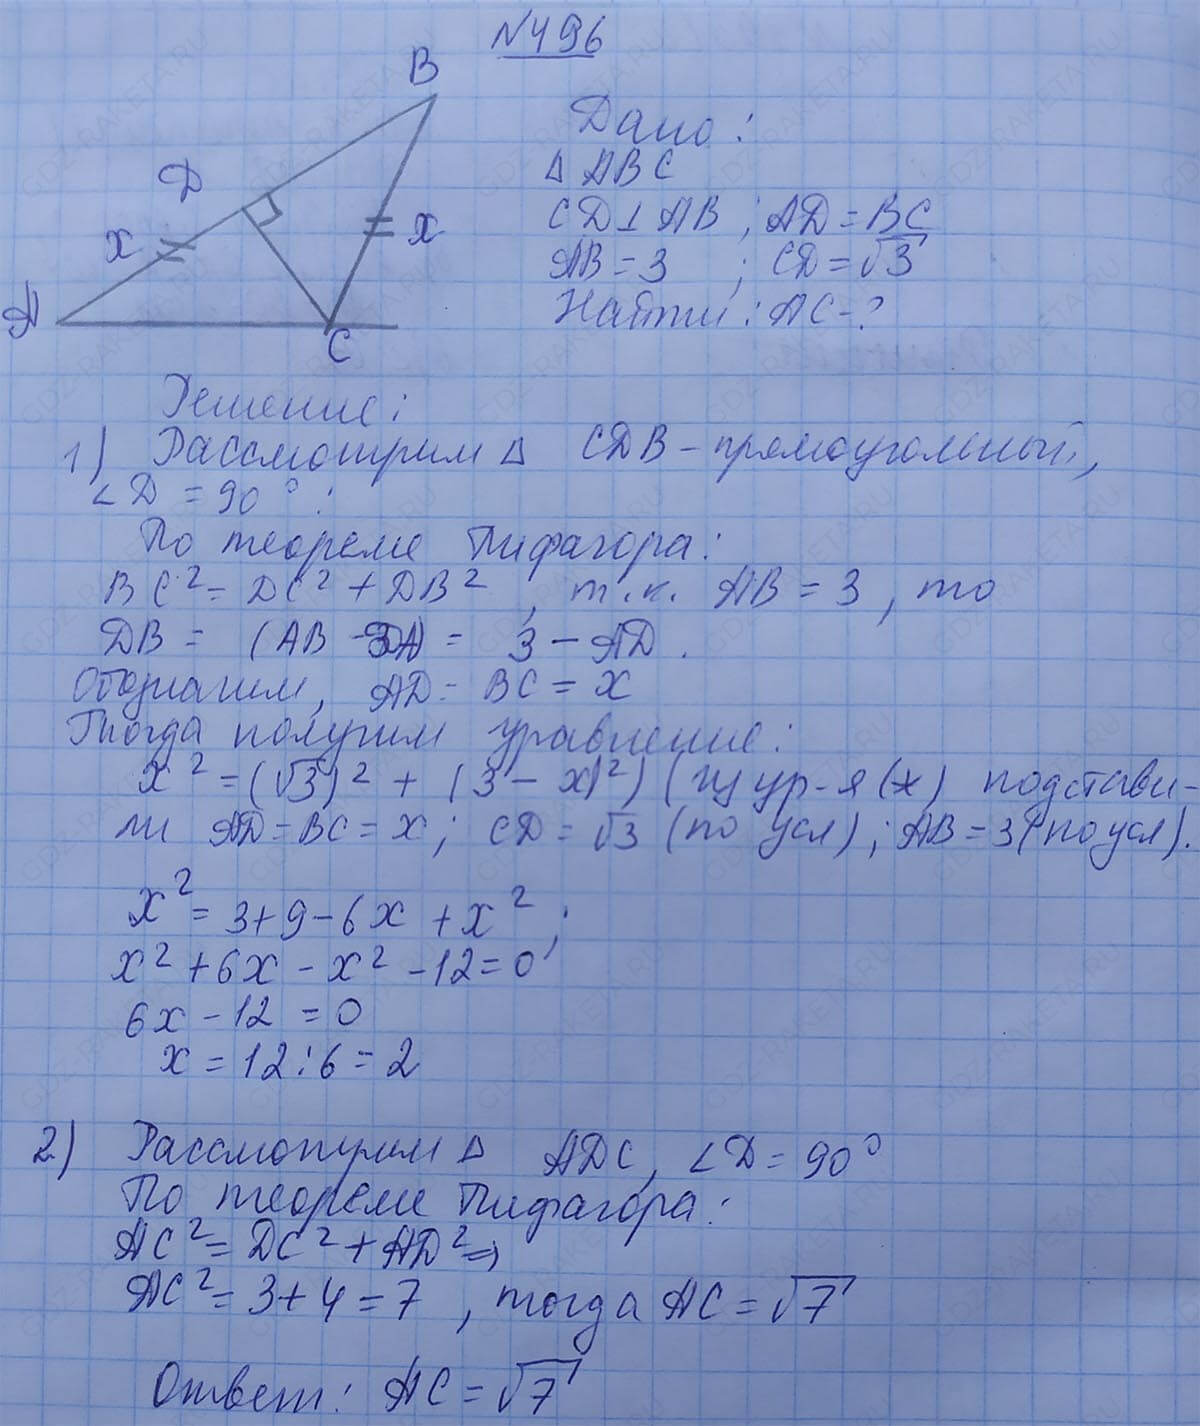 №496
B
Дано:
Δ ABC
D
CD⊥AB ; AD=BC
x
x
AB=3 ; CD=√3
A
Найти: AC-?
C
Решение:
1) Рассмотрим Δ CDB-прямоугольный,
∠D=90°:
По теореме Пифагора:
BC²=DC²+DB², т.к. AB=3, то
DB= (AB - DA) = 3-AD.
Обозначим, AD=BC=x
Тогда получим уравнение:
x²=(√3)²+(3-x)²) (в ур-я (*) подстави-
ли AD=BC=x; CD=√3 (по усл); AB=3(по усл).
x²=3+9-6x+x²;
x²+6x-x²-12=0
6x-12=0
x=12:6=2
2) Рассмотрим Δ ADC, ∠D=90°
По теореме Пифагора:
AC²=DC²+AD²⇒
AC²=3+4=7, тогда AC=√7
Ответ: AC=√7